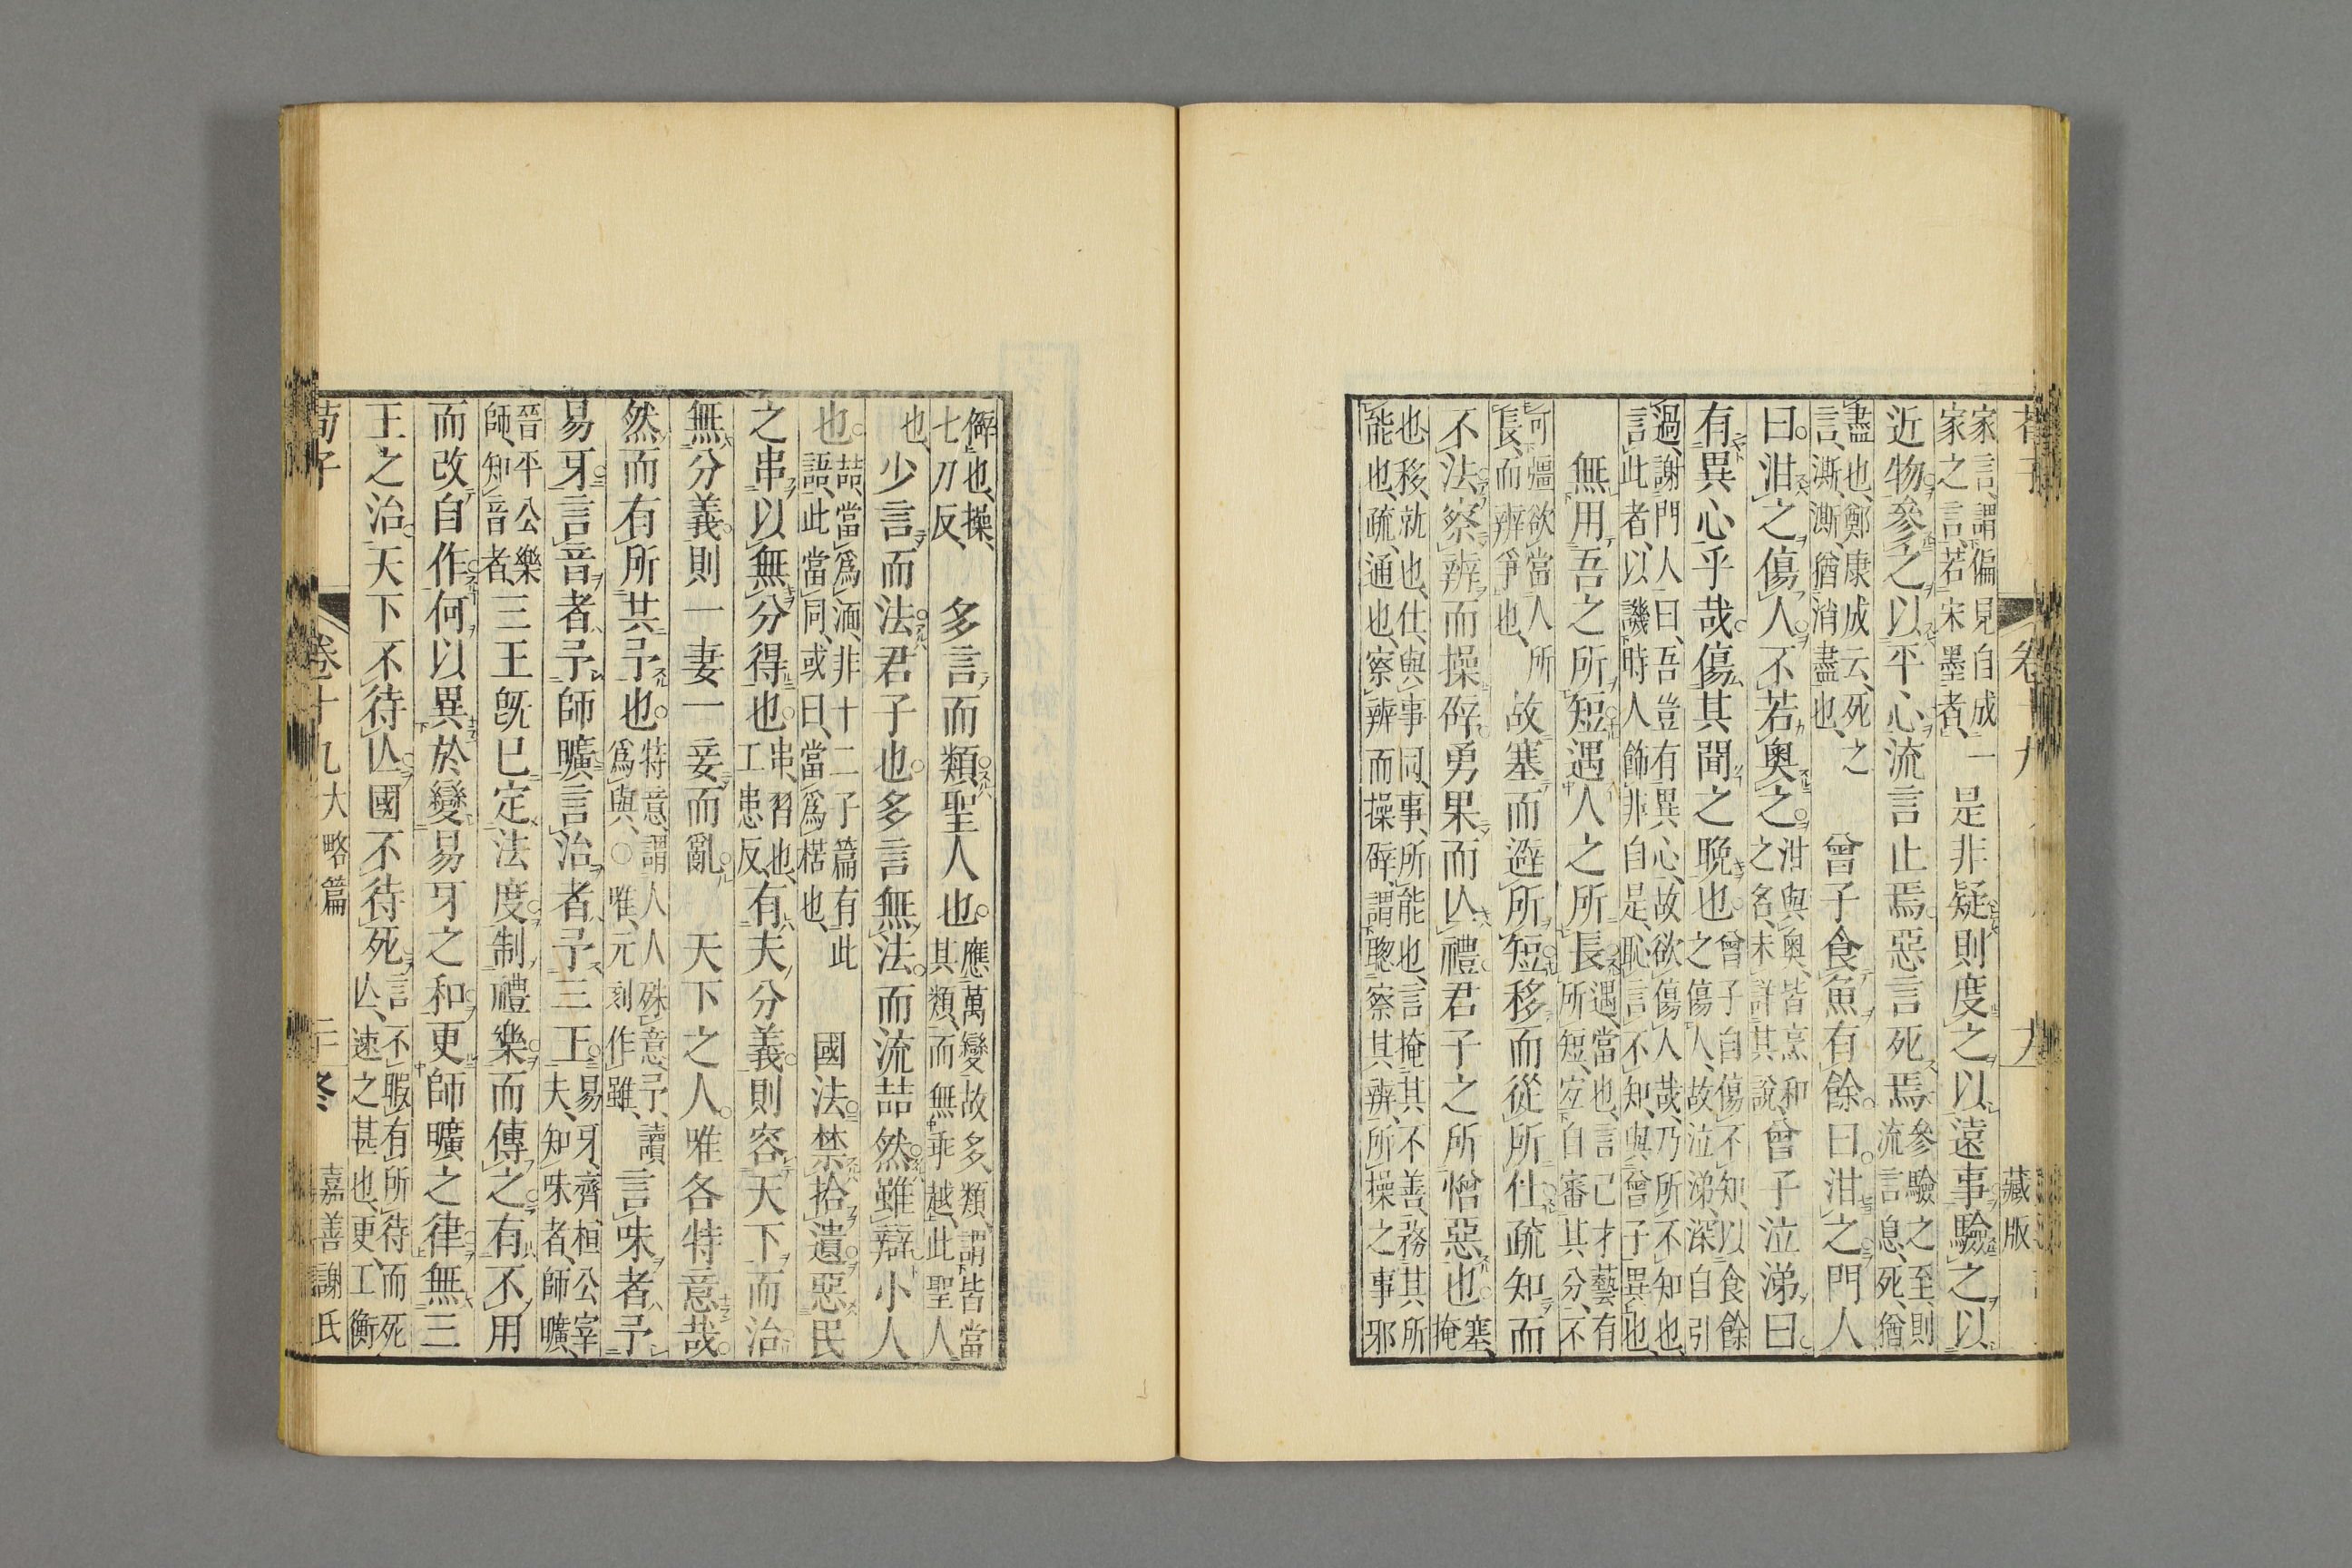 荀子
卷十九
十九
藏版
家言、謂偏見自成一
家之言、若宋墨者、
是非疑則度之以遠事驗之以
近物參之以平心流言止焉惡言死焉
參驗之至、則
流言息、死、猶
盡也、鄭康成云、死之
言、澌、澌、猶消盡也、
曾子食魚有餘曰泔之門人
曰泔之傷人不若奥之
泔與奥、皆烹和
之名、未詳其說、
曾子泣涕曰
有異心乎哉傷其聞之晩也
曾子自傷不知、以食餘
之傷人、故泣涕、深自引
過、謝門人曰、吾豈有異心、故欲傷人哉、乃所不知也、
言、此者、以譏時人飾非自是、恥言不知、與曾子異也、
無用吾之所短遇人之所長
遇、當也、言己才藝有
所短、宐自審其分、不
可彊欲當人所
長、而辨爭也、
故塞而避所短移而從所仕疏知而
不法察辨而操僻勇果而亾禮君子之所憎惡也
塞、
掩
也、移、就也、仕、與事同、事、所能也、言掩其不善、務其所
能也、疏、通也、察辨而操僻、謂聰察其辨、所操之事邪
僻也、操、
七刀反、
多言而類聖人也
應萬變故多類、謂皆當
其類、而無乖越、此聖人
也、
少言而法君子也多言無法而流喆然雖辯小人
也
喆、當爲湎、非十二子篇有此
語、此當同、或曰、當爲楛也、
國法禁拾遺惡民
之串以無分得也
串、習也、
工患反、
有夫分義則容天下而治
無分義則一妻一妾而亂
天下之人唯各特意哉
然而有所共予也
特意、謂人人殊意、予、讀
爲與、〇唯、元刻作雖、
言味者予
易牙言音者予師曠言治者予三王
易牙、齊桓公宰
夫、知味者、師曠、
晉平公樂
師、知音者、
三王既已定法度制禮樂而傳之有不用
而改自作何以異於變易牙之和更師曠之律無三
王之治天下不待亾國不待死
言不暇有所待而死
亾、速之甚也、更、工衡
荀子
卷十九大略篇
二十
嘉善謝氏